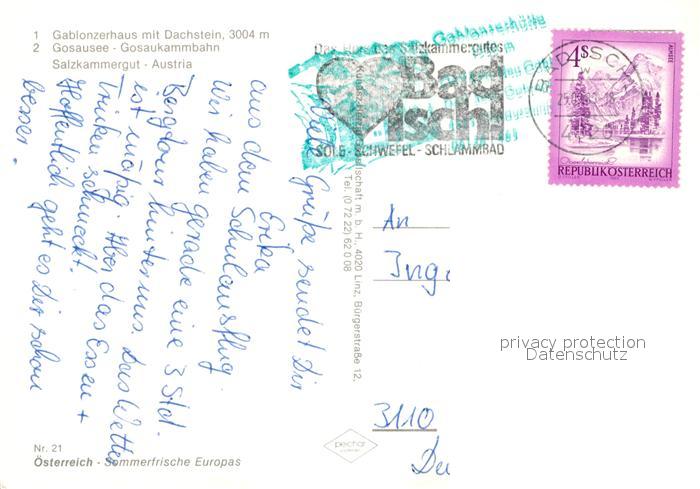 1 Gablonzerhaus mit Dachstein, 3004 m
2 Gosausee - Gosaukammbahn
Salzkammergut - Austria
Liebe Grüße sendet Dir
Erika
aus dem Schulausflug.
Wir haben gerade eine 3 Std.
Bergtour hinter uns. Das Wetter
ist mäßig. Aber das Essen +
Trinken schmeckt.
Hoffentlich geht es Dir schon
besser.
Nr. 21
Österreich - Sommerfrische Europas
Das Herz des Salzkammergutes
Bad
Ischl
SOLE - SCHWEFEL - SCHLAMMBAD
Gablonzerhütte
BAD ISCHL
4 S
ALMSEE
Oberösterreich
REPUBLIK ÖSTERREICH
m. b. H., 4020 Linz, Bürgerstraße 12,
Tel. (0 72 22) 62 0 08
An
Inge
3110
pechar
privacy protection
Datenschutz